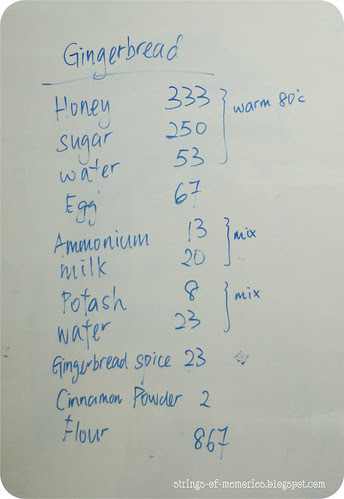 Gingerbread
Honey 333
sugar 250 warm 80°c
water 53
Egg 67
Ammonium 13 mix
milk 20
Potash 8 mix
water 23
Gingerbread spice 23
Cinnamon Powder 2
Flour 867
strings-of-memories.blogspot.com